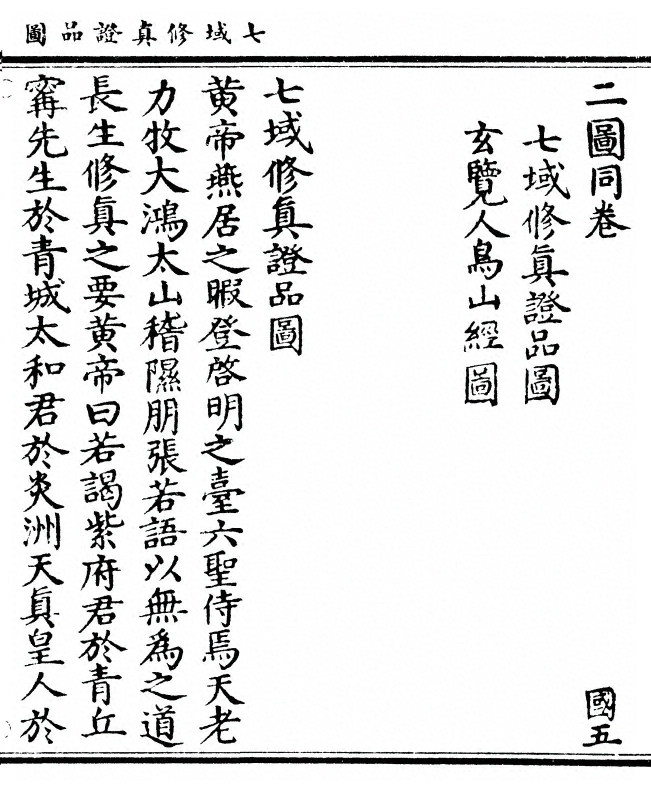 七域修真證品圖
二圖同卷
國五
七域修真證品圖
玄覽人鳥山經圖
七域修真證品圖
黄帝燕居之暇登啓明之臺六聖侍焉天老
力牧大鴻太山稽隰朋張若語以無爲之道
長生修真之要黄帝曰若謁紫府君於青丘
甯先生於青城太和君於炎洲天真皇人於